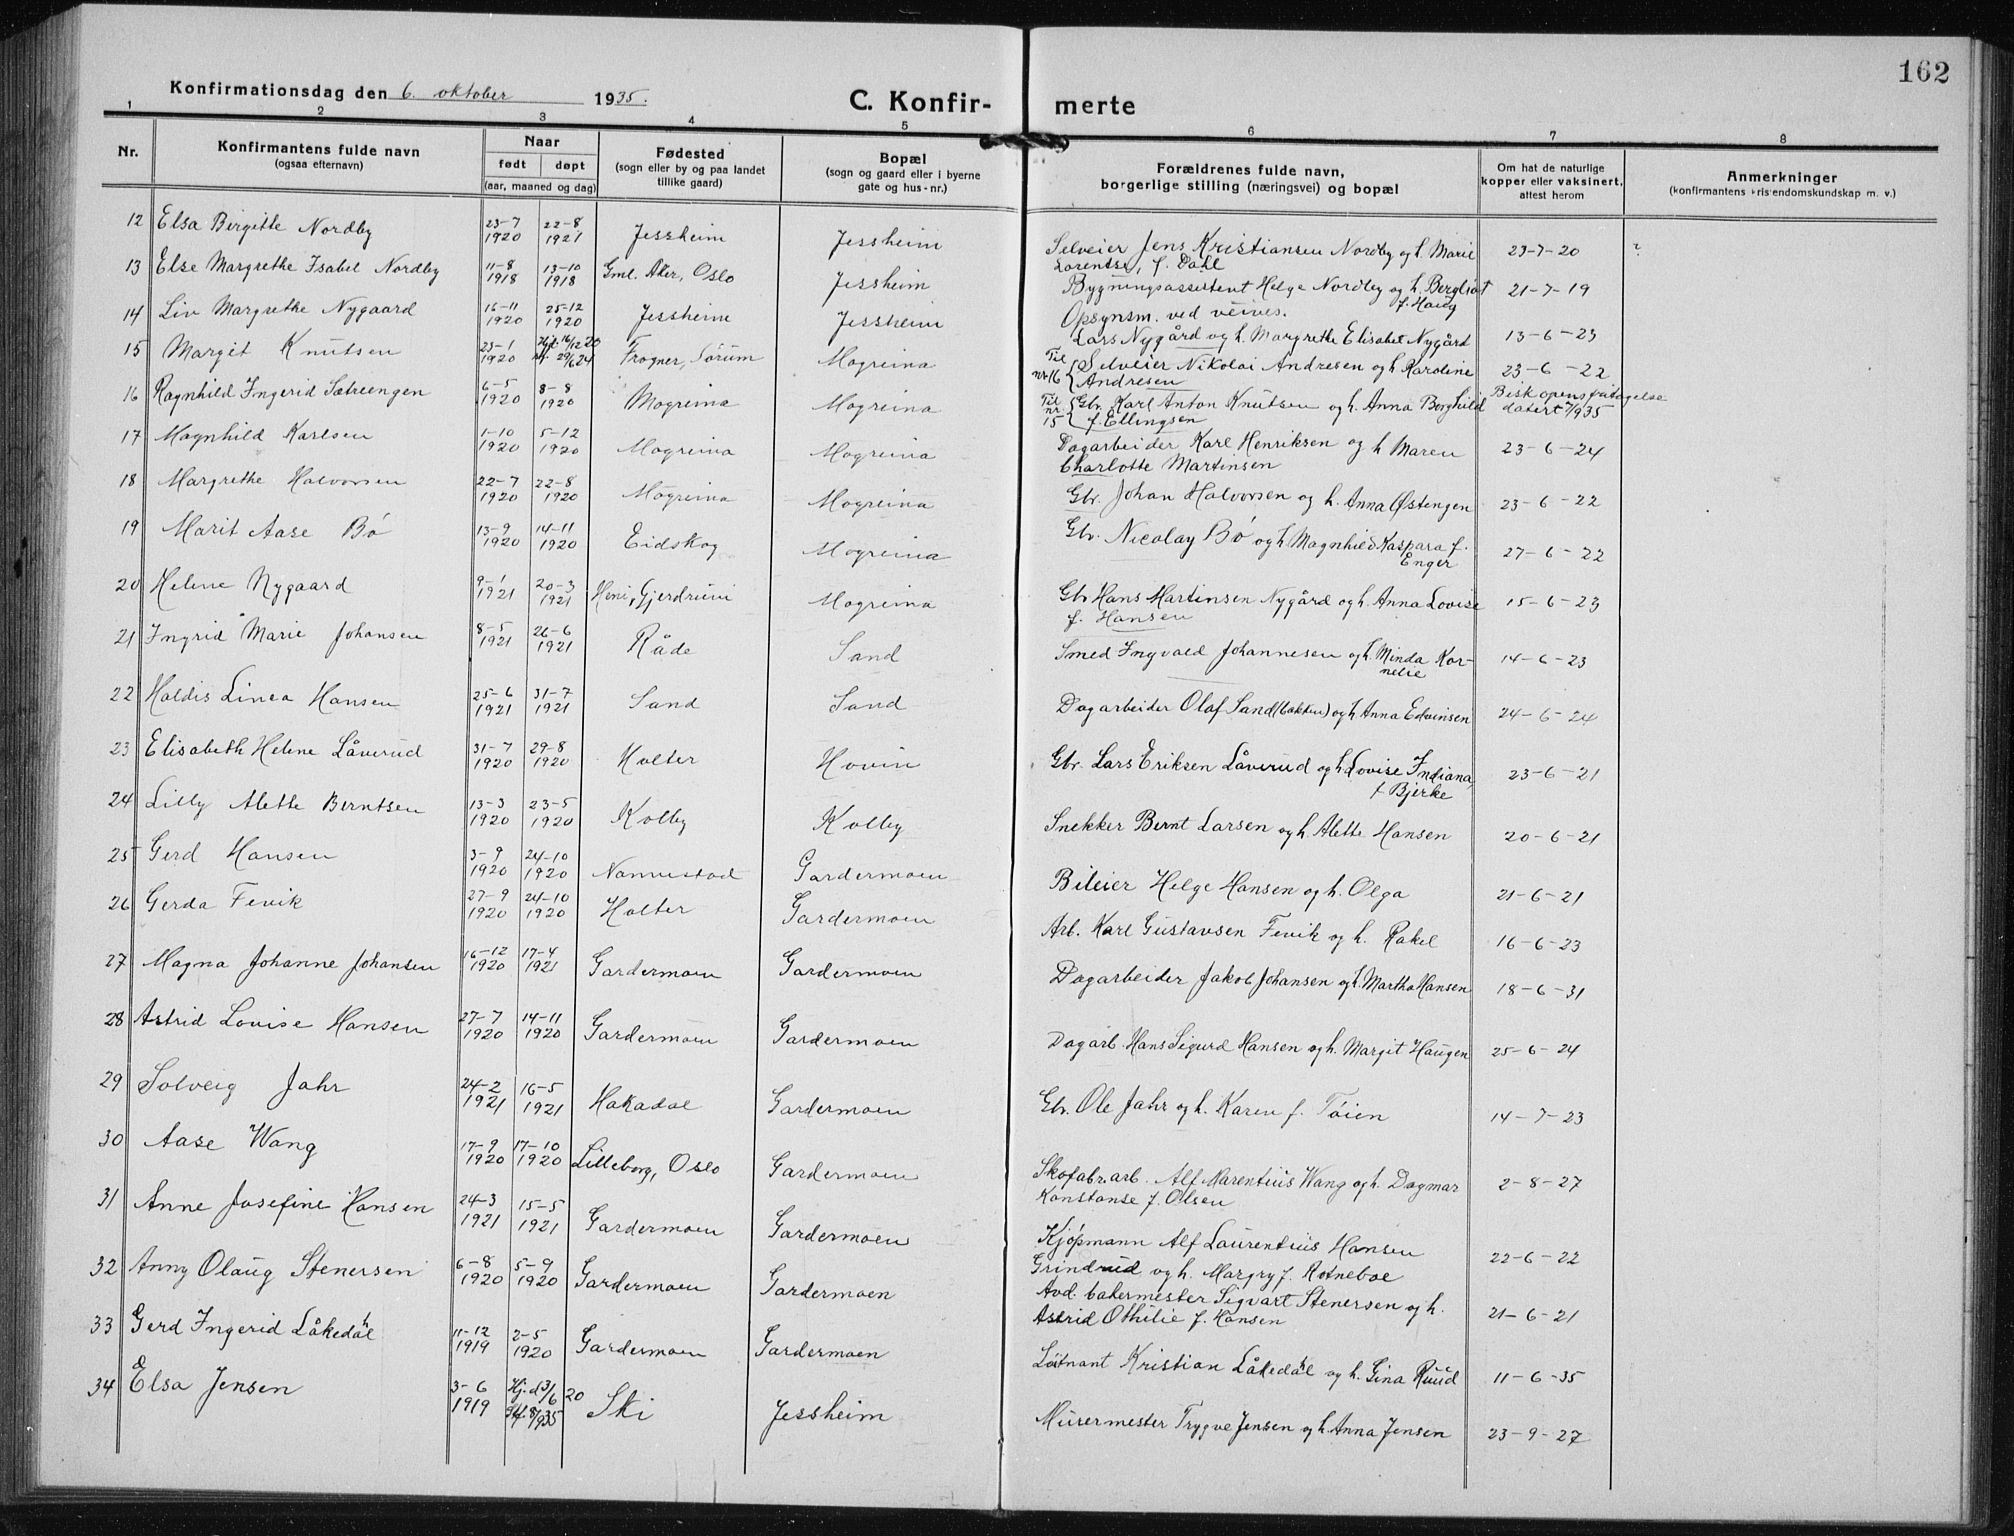 162
Konfirmationsdag den 6. oktober 1935.
C. Konfir- merte
1 2 3 4 5 6 7 8
Nr.
Konfirmantens fulde navn
(ogsaa efternavn)
Naar
født døpt
(aar, maaned og dag)
Fødested
(sogn eller by og paa landet
tillike gaard)
Bopæl
(sogn og gaard eller i byerne
gate og hus-nr.)
Forældrenes fulde navn,
borgerlige stilling (næringsvei) og bopæl
Om hat de naturlige
kopper eller vaksinert,
attest herom
Anmerkninger
(konfirmantens kristendomskundskap m. v.)
12 Elsa Birgitte Nordby 23-7 1920 22-8 1921 Jessheim Jessheim Selveier Jens Kristiansen Nordby og h. Marie 23-7-20 ?
Lorentse, f. Dahl
13 Else Margrethe Isabel Nordby 11-8 1918 13-10 1918 Gml. Aker, Oslo Jessheim Bygningsassistent Helge Nordby og h. Bergliot 21-7-19
f. Haug
14 Liv Margrethe Nygaard 16-11 1920 25-12 1920 Jessheim Jessheim Opsynsm. ved veives.
Lars Nygård og h. Margrethe Elisabet Nygård 13-6-23
15 Margit Knutsen 23-1 1920 Hjd. 16/12 20 29/6 24 Frogner, Sørum Mogreina Til nr 16 { Selveier Nikolai Andresen og h Karoline 23-6-22
Andresen
16 Ragnhild Ingerid Sætreengen 6-5 1920 8-8 1920 Mogreina Mogreina Til nr. 15 { Gbr. Karl Anton Knutsen og h. Anna Borghild Biskopens fritagelse
f. Ellingsen datert 7/9 35
17 Magnhild Karlsen 1-10 1920 5-12 1920 Mogreina Mogreina Dagarbeider Karl Henriksen og h Maren 23-6-24
Charlotte Martinsen
18 Margrethe Halvorsen 22-7 1920 22-8 1920 Mogreina Mogreina Gbr. Johan Halvorsen og h. Anna Østengen 23-6-22
19 Marit Aase Bø 13-9 1920 14-11 1920 Eidskog Mogreina Gbr. Nicolay Bø og h Magnhild Kaspara f. 27-6-22
Enger
20 Helene Nygaard 9-1 1921 20-3 1921 Heni, Gjerdrum Mogreina Gbr Hans Martinsen Nygård og h. Anna Lovise 15-6-23
f. Hansen
21 Ingrid Marie Johansen 8-5 1921 26-6 1921 Råde Sand Smed Ingvald Johannesen og h. Minda Kor- 14-6-23
nelie
22 Haldis Linea Hansen 25-6 1921 31-7 1921 Sand Sand Dagarbeider Olaf Sand (bakken) og h Anna Edvinsen 24-6-24
23 Elisabeth Helene Låverud 31-7 1920 29-8 1920 Holter Hovin Gbr. Lars Eriksen Låverud og h Lovise Indiana, 23-6-21
f Bjerke
24 Lilly Alette Berntsen 13-3 1920 23-5 1920 Kolby Kolby Snekker Bernt Larsen og h. Alette Hansen 20-6-21
25 Gerd Hansen 3-9 1920 24-10 1920 Nannestad Gardermoen Bileier Helge Hansen og h. Olga 21-6-21
26 Gerda Fevik 27-9 1920 24-10 1920 Holter Gardermoen Arb. Karl Gustavsen Fevik og h. Rakel 16-6-23
27 Magna Johanne Johansen 16-12 1920 17-4 1921 Gardermoen Gardermoen Dagarbeider Jakob Johansen og h. Martha Hansen 18-6-31
28 Astrid Lovise Hansen 27-7 1920 14-11 1920 Gardermoen Gardermoen Dagarb. Hans Sigurd Hansen og h. Margit Haugen 25-6-24
29 Solveig Jahr 24-2 1921 16-5 1921 Hakadal Gardermoen Gbr. Ole Jahr og h. Karen f. Tøien 14-7-23
30 Aase Wang 17-9 1920 17-10 1920 Lilleborg, Oslo Gardermoen Skofabr.arb. Alf Marentius Wang og h. Dagmar 2-8-27
Konstanse f. Olsen
31 Anne Josefine Hansen 24-3 1921 15-5 1921 Gardermoen Gardermoen Kjøpmann Alf Laurentius Hansen 22-6-22
Grindrud og h. Margry f. Rotneboe
32 Anny Olaug Stenersen 6-8 1920 5-9 1920 Gardermoen Gardermoen Avd. bakermester Sigvart Stenersen og h. 21-6-21
Astrid Othilie f. Hansen
33 Gerd Ingerid Låkedahl 11-12 1919 2-5 1920 Gardermoen Gardermoen Løitnant Kristian Låkedahl og h. Gina Ruud 11-6-35
34 Elsa Jensen 3-6 1919 Hj.d 3/6 20 8/9 35 Ski Jessheim Murermester Trygve Jensen og h. Anna Jensen 23-9-27